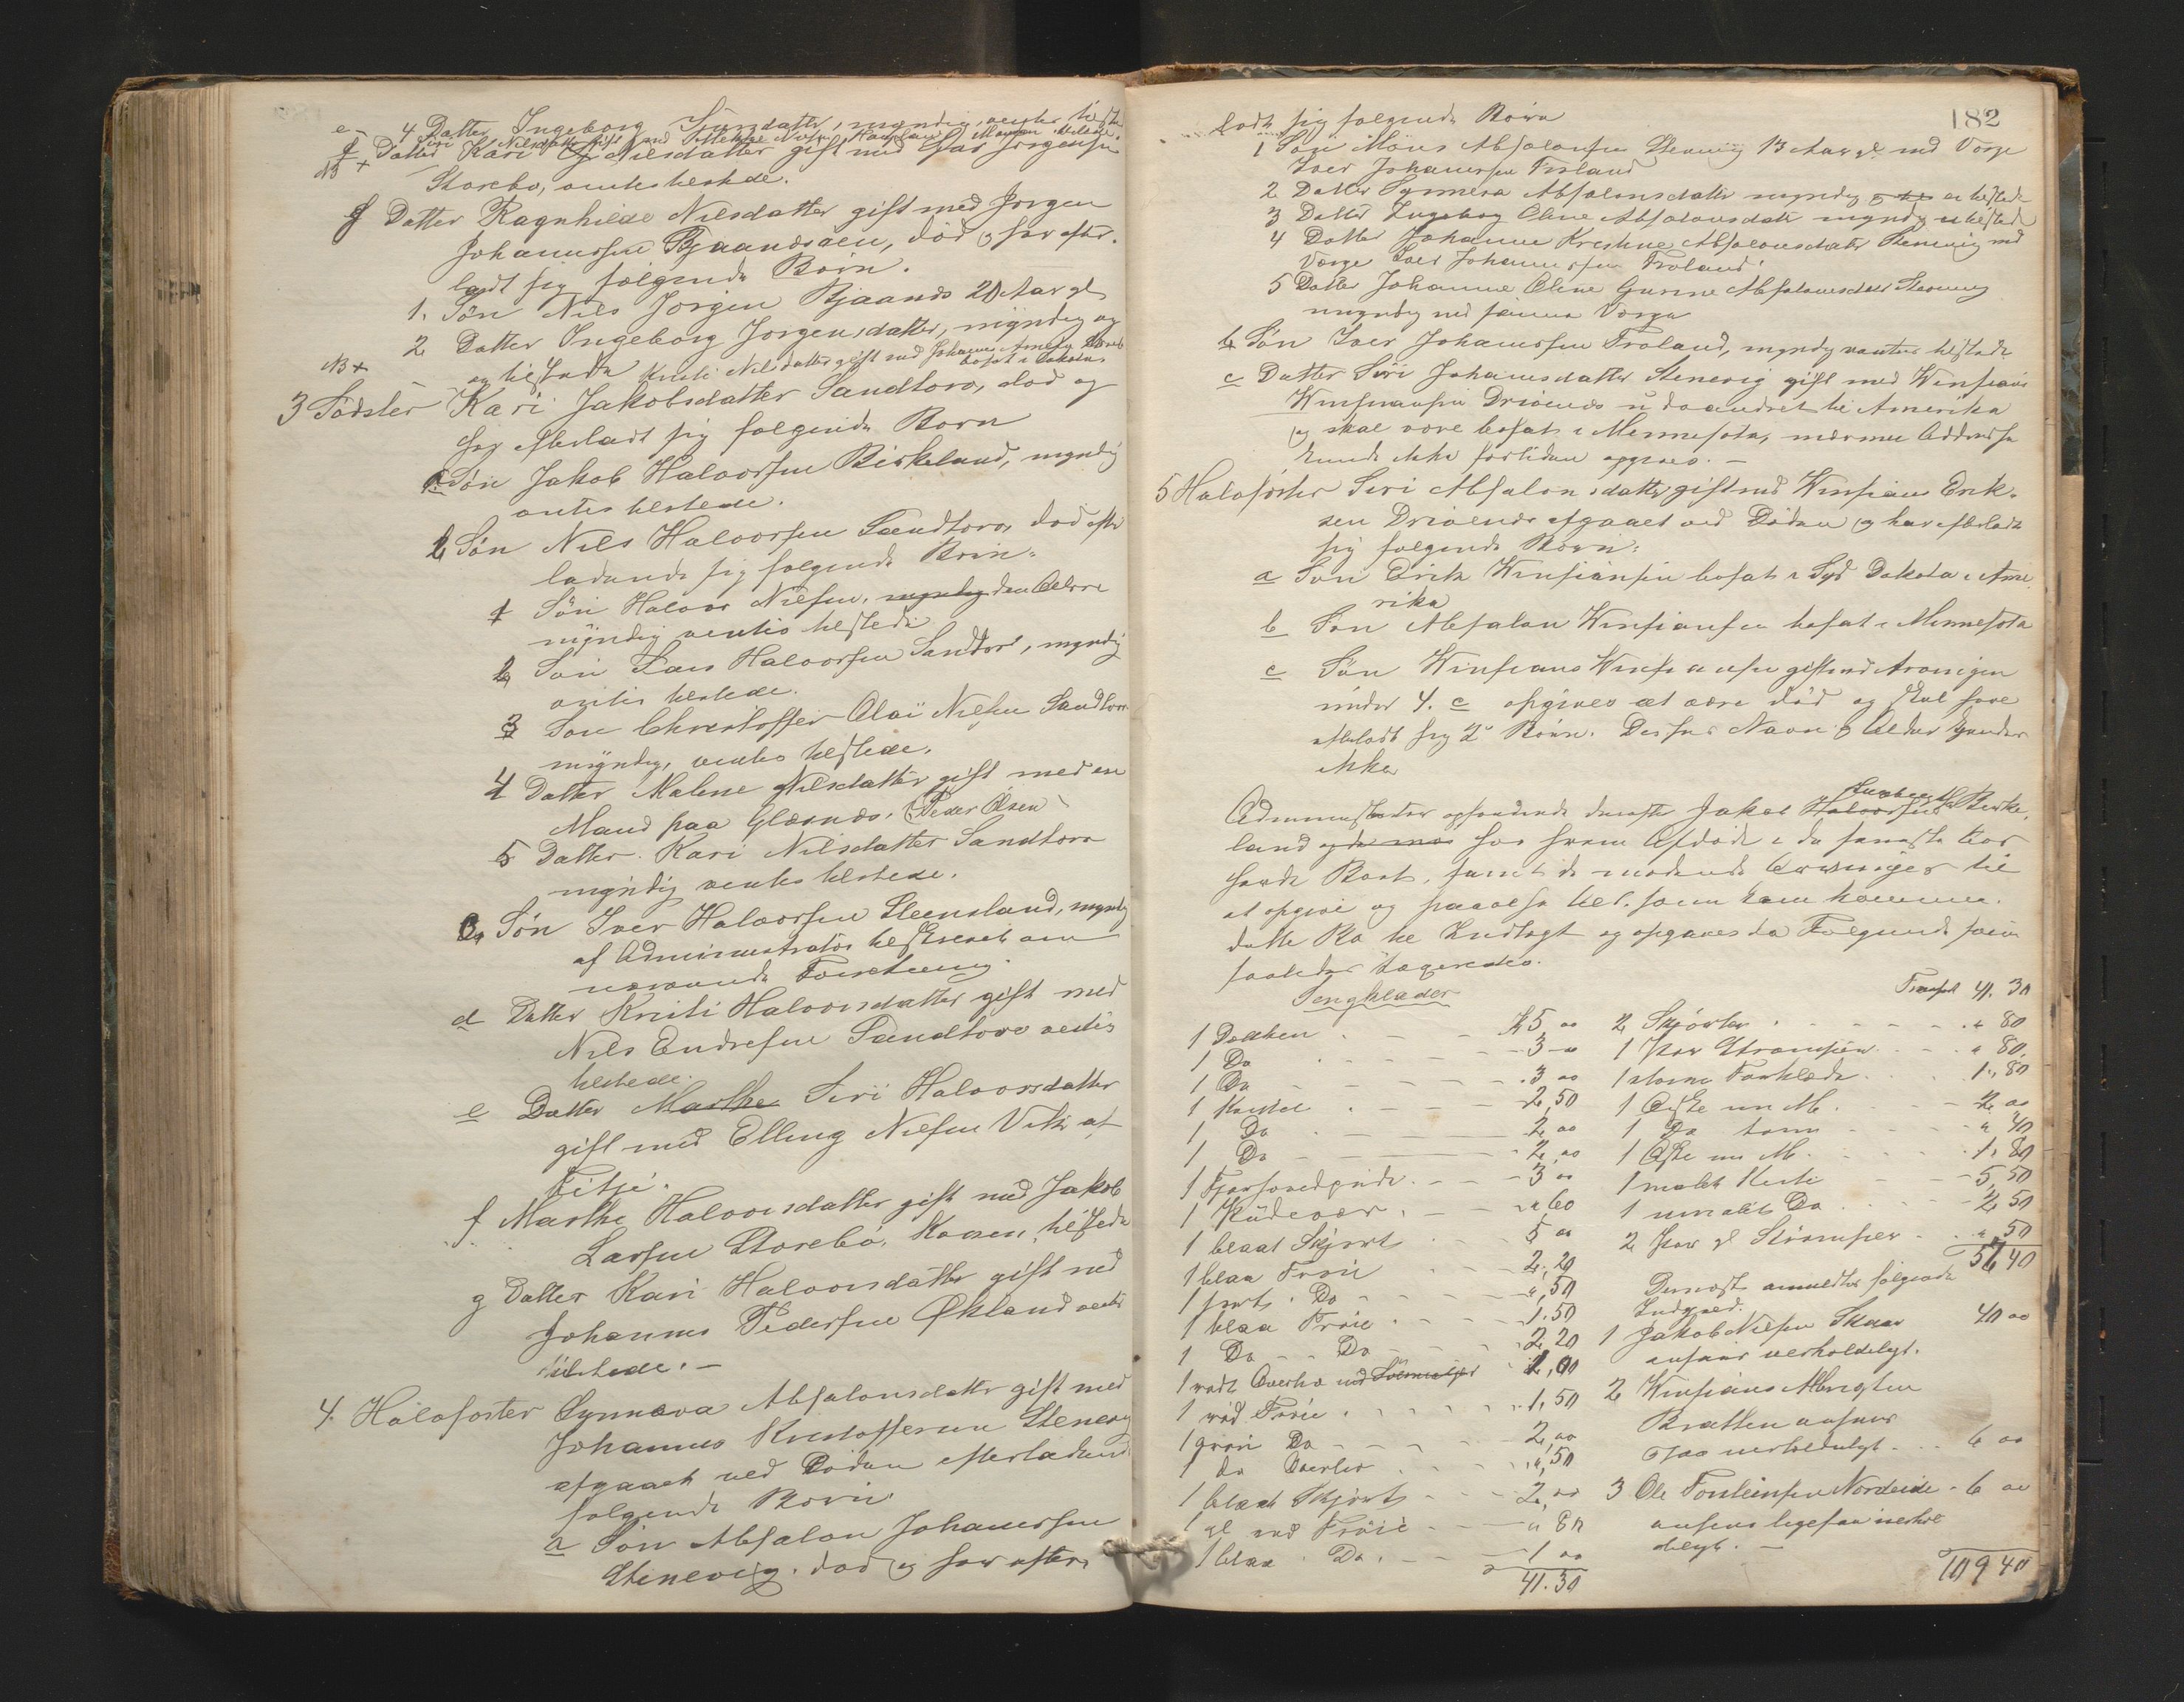 4 Datter Ingeborg Larsdatter, myndig, ventes tilstede
e Siri Nilsdatter gift med
NB + f Datter Kari Nilsdatter gift med Lars Jorgensen
Storebo, antes tilstede.
g Datter Ragnhilde Nilsdatter gift med Jorgen
Johannessen Bjaanæsøen, død og har efter-
ladt sig følgende Børn.
1. Søn Nils Jorgen Bjaanæs 20 Aar gl
2 Datter Ingeborg Jorgensdatter, myndig og
og tilstede
NB + Kristi Nilsdatter gift med Johannes bosat i Dakota
3 Søster Kari Jakobsdatter Sandtorv, død og
har efterladt sig følgende Børn
a Søn Jakob Halvorsen Birkeland, myndig
antes tilstede.
b Søn Nils Halvorsen Sandtorv, død efter
ladende sig følgende Børn.
1 Søn Halvor Nilsen, myndig den Ældre
myndig ventes tilstede
2 Søn Lars Halvorsen Sandtorv, myndig
antes tilstede.
3 Søn Christoffer Olai Nilsen Sandtorv
myndig, ventes tilstede.
4 Datter Malene Nilsdatter gift med en
Mand paa Glesnæs, (Peder Olsen)
5 Datter Kari Nilsdatter Sandtorv
myndig ventes tilstede.
c. Søn Iver Halvorsen Steensland, myndig
af Administrator tilskrevet om
nærværende Forretning.
d Datter Kristi Halvorsdatter gift med
Nils Endresen Sandtorv ventes
tilstede.
e Datter Marthe Siri Halvorsdatter
gift med Elling Nilsen Vik af
Fitje.
f Marthe Halvorsdatter gift med Jakob
Larsen Storebø, Konen, tilstede
g Datter Kari Halvorsdatter gift med
Johannes Pedersen Økland ventes
tilstede. —
4. Halvsøster Synneva Absalonsdatter gift med
Johannes Kristoffersen Stenevig
afgaaet ved Døden efterladende
følgende Børn
a Søn Absalon Johannessen
Stenevig. død og har efter-
182
ladt sig følgende Børn
1 Søn Møns Absalonsen Stenevig 13 Aar gl med Værge
Iver Johannessen Froland
2 Datter Synneva Absalonsdatter myndig er tilstede
3 Datter Ingeborg Oline Absalonsdatter myndig er tilstede
4 Datter Johanne Kristine Absalonsdatter Stenevig med
Værge Iver Johannessen Froland.
5 Datter Johanne Oline Gurine Absalonsdatter Stenevig
umyndig med samme Værge
b Søn Iver Johannessen Froland, myndig ventes tilstede
c Datter Siri Johannesdatter Stenevig gift med Winsians
Winsiansen Drivenes udvandret til Amerika
og skal være bosat i Minnesota, nærmere Addresse
kunde ikke for tiden opgives. —
5 Halvsøster Siri Absalonsdatter gift med Winsians Erik-
sen Drivenes afgaaet ved Døden og har efterladt
sig følgende Børn:
a Søn Erik Winsiansen bosat i Syd Dakota i Ame-
rika
b Søn Absalon Winsiansen bosat i Minnesota
c Søn Winsians Winsiansen gift med Arvingen
under 4. c opgives at være død og skal have
efterladt sig 2 Børn. Disses Navne og Alder kjendes
ikke
Administrator opfordrede derefter Jakob Halvorsen Birke-
land hos hvem Afdøde i de seneste Aar
havde Boet, samt de mødende Arvinger til
at opgive og paavise Alt som kan komme
dette Bo til Indtægt og opgaves da Følgende som
saaledes taxeredes.
Sengklæder
1 Dækken . . K 5,00
1 Do . . 3 00
1 Do . . 3 00
1 Kvitel . . 2,50
1 Do . . 2,00
1 Do . . 2,00
1 Fjærhovedpude . . 3 00
1 Pudevær . . " 60
1 blaat Skjørt . . 5 00
1 blaa Trøie . . 2,20
1 sort Do . . " ,50
1 blaa Trøie . . 1.50
1 Do Do . . 2,20
1 rødt Overliv 1,00
1 rød Trøie . . 1,50
1 grøn Do . . 2,00
1 do Overliv . . ",50
1 blaat Skjørt . . 2,00
1 gl rød Trøie . . " 80
1 blaa Do . . 1 00
41.30
Transpt 41. 30
2 Skjorter . . " 80
1 par Strømper . . " 80
1 større Torklæde . . 1,80
1 Æske um M. . . 2 00
1 Do tom . . " 40
1 Æske um M. . . 1,80
1 malet Kiste . . 5,50
1 umalet Do . . 2 50
2 par gl Strømper . . " ,50
57 40
Dernæst anmeldtes følgende
Indgjæld.
1 Jakob Nilsen Skaar 40 00
ansaaes uerholdeligt.
2 Winsians Albrigtsen
Bratten ansaaes
og saa uerholdeligt . . 6 00
3 Ole Torsteinsen Nordeide . 6 00
ansaaes ligesaa uerhol
deligt. —
109 40